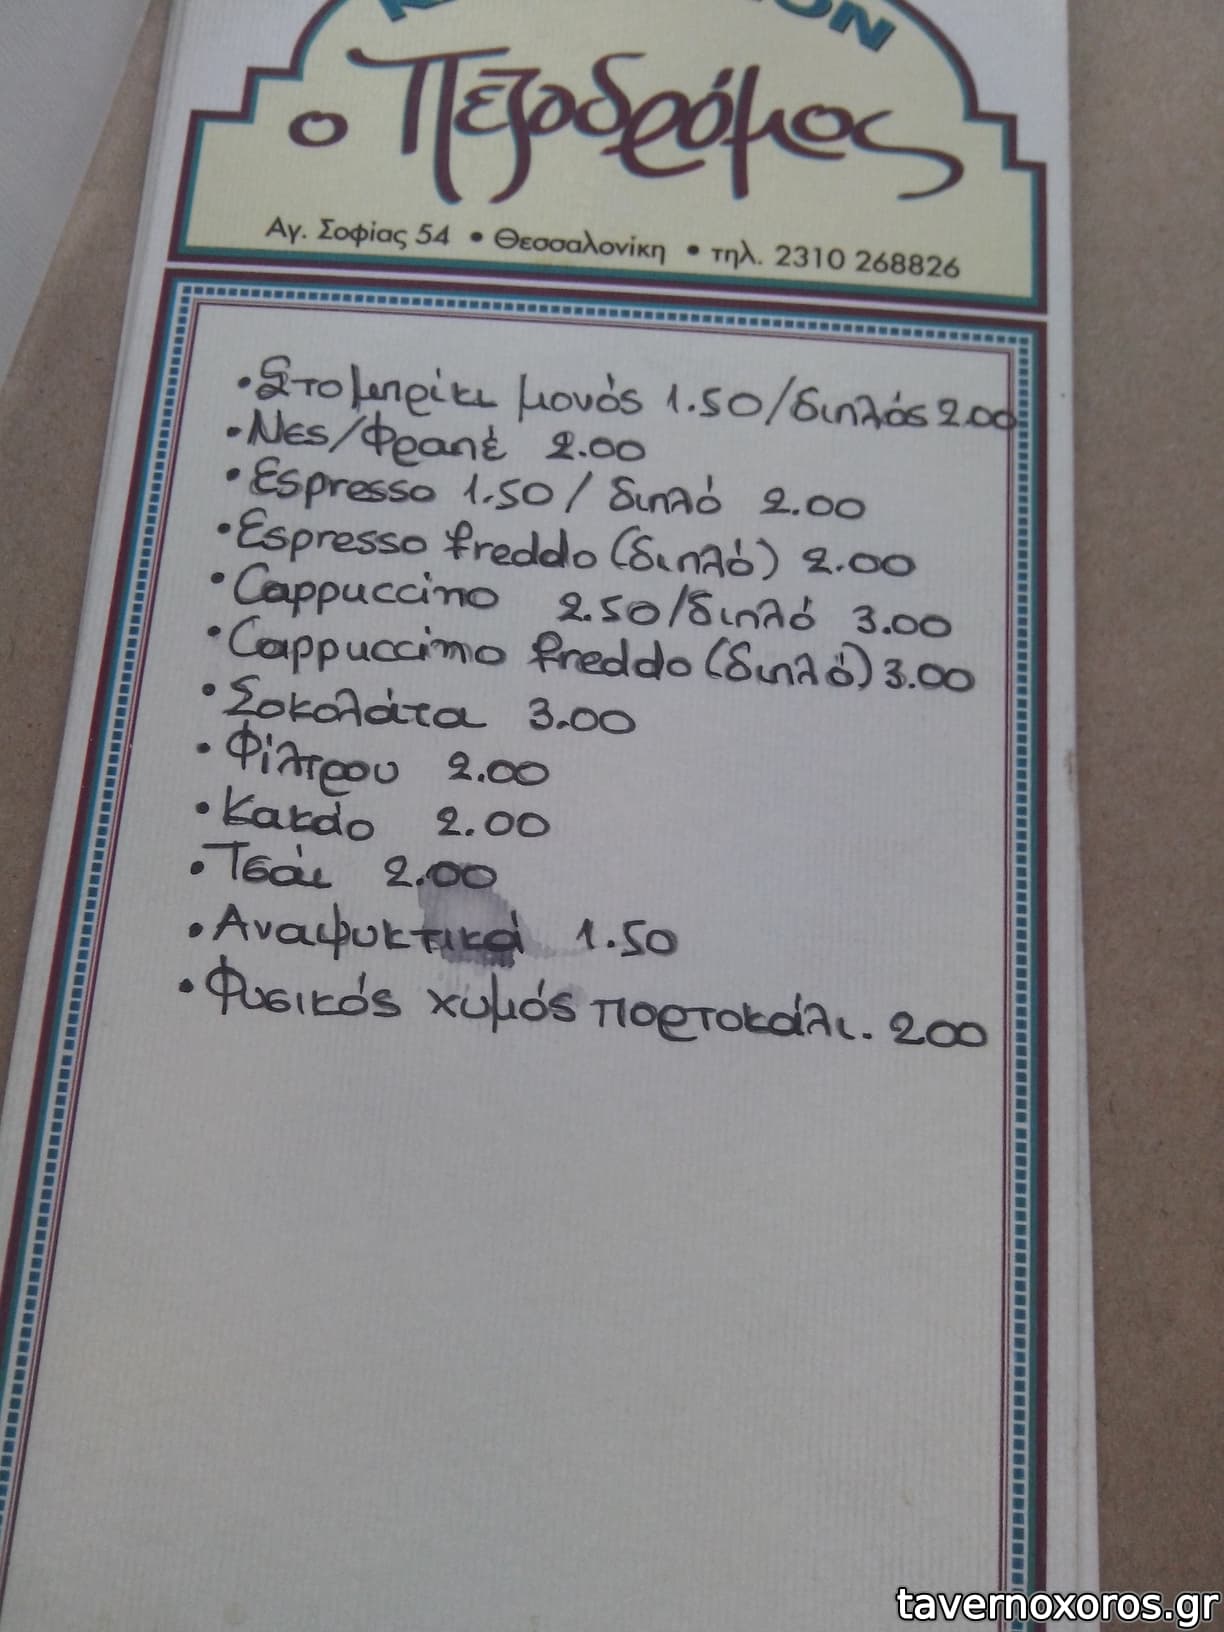 ο Πεζοδρόμος
Αγ. Σοφίας 54 • Θεσσαλονίκη • τηλ. 2310 268826
• Στο μπρίκι μονός 1.50/διπλός 2.00
• Νες/Φραπέ 2.00
• Espresso 1.50 / διπλό 2.00
• Espresso freddo (διπλό) 2.00
• Cappuccino 2.50/διπλό 3.00
• Cappuccino freddo (διπλό) 3.00
• Σοκολάτα 3.00
• Φίλτρου 2.00
• Κακάο 2.00
• Τσάι 2.00
• Αναψυκτικά 1.50
• Φυσικός χυμός πορτοκάλι. 200
tavernoxoros.gr